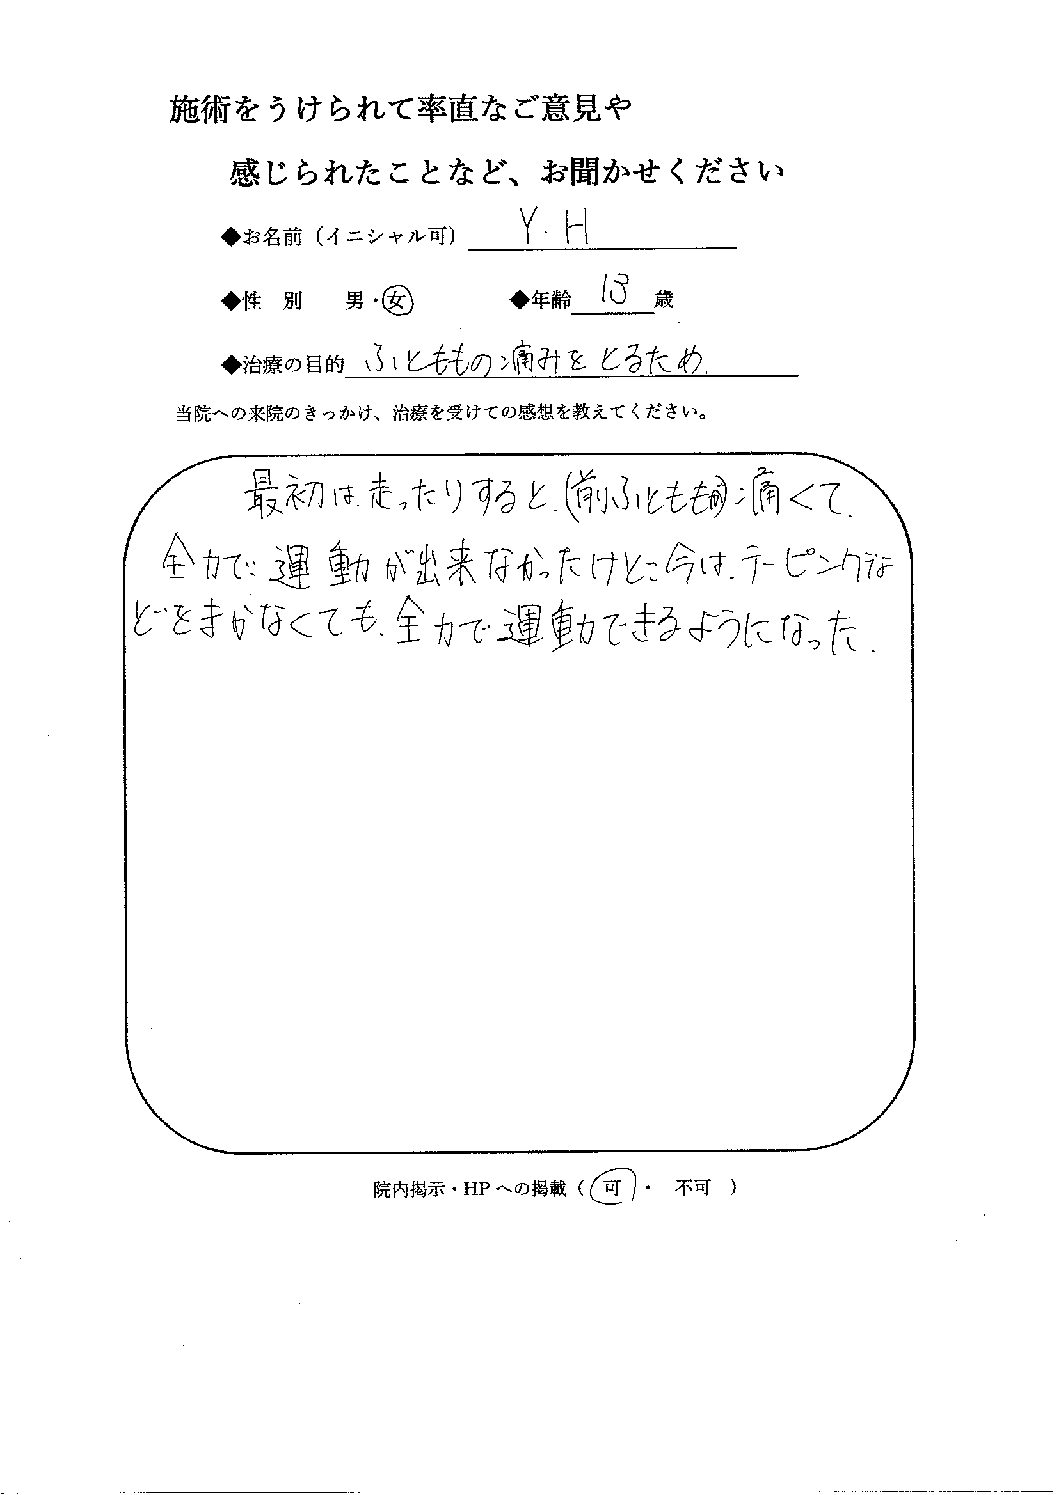 施術をうけられて率直なご意見や
感じられたことなど、お聞かせください
◆お名前（イニシャル可） Y.H
◆性 別 男・女 ◆年齢 13 歳
◆治療の目的 ふとももの痛みをとるため.
当院への来院のきっかけ、治療を受けての感想を教えてください。
最初は、走ったりすると、(前ふともも)痛くて、
全力で運動が出来なかったけど今は、テーピングな
どをまかなくても、全力で運動できるようになった.
院内掲示・HPへの掲載（ 可 ・ 不可 ）